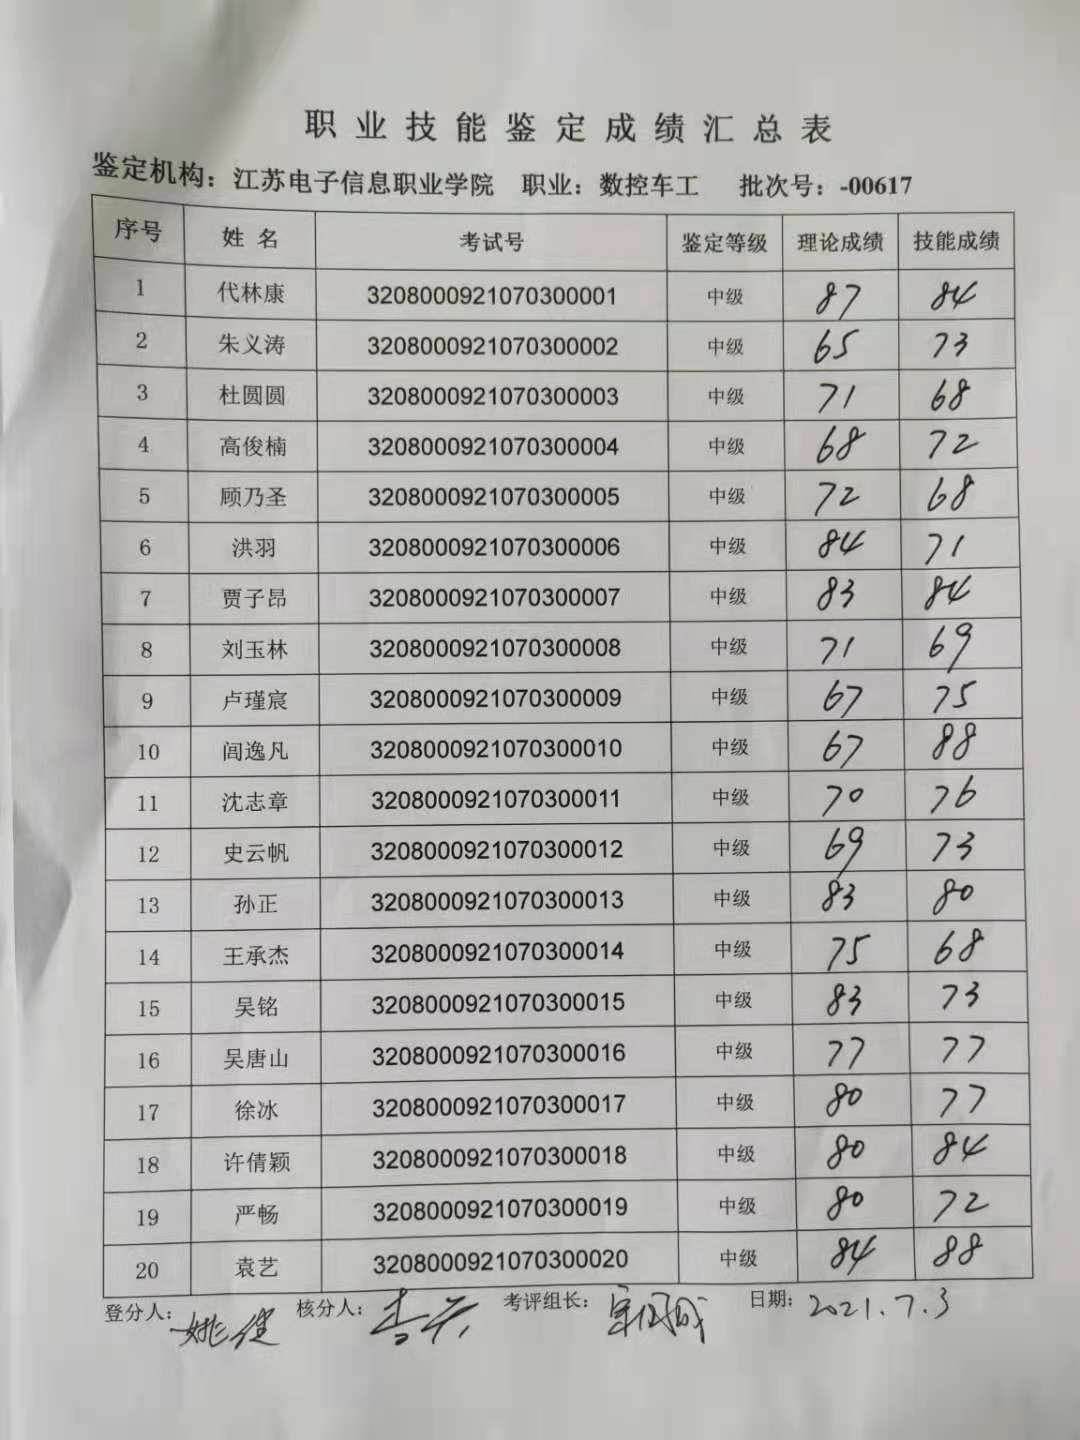 职业技能鉴定成绩汇总表
鉴定机构：江苏电子信息职业学院 职业：数控车工 批次号：-00617
序号 姓名 考试号 鉴定等级 理论成绩 技能成绩
1 代林康 3208000921070300001 中级 87 84
2 朱义涛 3208000921070300002 中级 65 73
3 杜圆圆 3208000921070300003 中级 71 68
4 高俊楠 3208000921070300004 中级 68 72
5 顾乃圣 3208000921070300005 中级 72 68
6 洪羽 3208000921070300006 中级 84 71
7 贾子昂 3208000921070300007 中级 83 84
8 刘玉林 3208000921070300008 中级 71 69
9 卢瑾宸 3208000921070300009 中级 67 75
10 闾逸凡 3208000921070300010 中级 67 88
11 沈志章 3208000921070300011 中级 70 76
12 史云帆 3208000921070300012 中级 69 73
13 孙正 3208000921070300013 中级 83 80
14 王承杰 3208000921070300014 中级 75 68
15 吴铭 3208000921070300015 中级 83 73
16 吴唐山 3208000921070300016 中级 77 77
17 徐冰 3208000921070300017 中级 80 77
18 许倩颖 3208000921070300018 中级 80 84
19 严畅 3208000921070300019 中级 80 72
20 袁艺 3208000921070300020 中级 84 88
登分人：姚健 核分人： 考评组长： 日期：2021.7.3